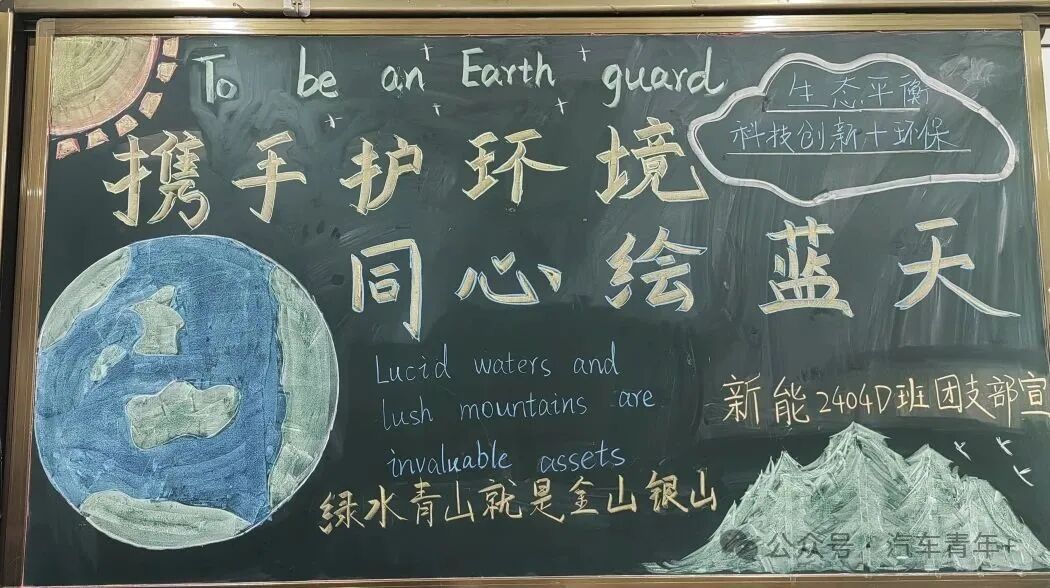 To be an Earth guard
生态平衡
科技创新+环保
携手护环境
同心绘蓝天
Lucid waters and
lush mountains are
invaluable assets
绿水青山就是金山银山
新能2404D班团支部宣
公众号·汽车青年+